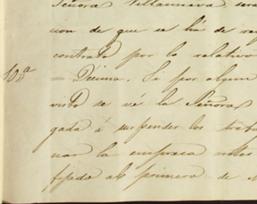 Señora Villanueva
cion de que se há de
contrato por lo relativo
10ª = Decima. Si por algun
vista de sé la Señora
gada á suspender los trab
nar la empresa antes
fijada al primero de